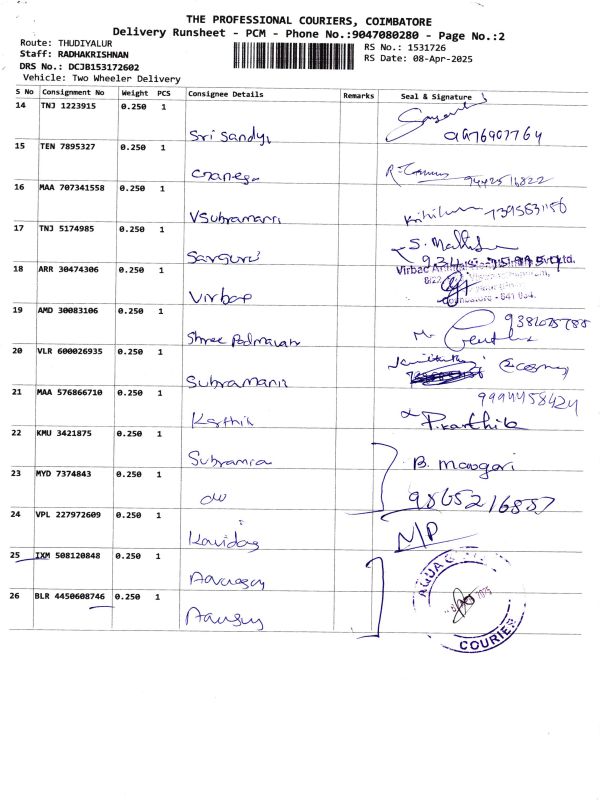 THE PROFESSIONAL COURIERS, COIMBATORE
Delivery Runsheet - PCM - Phone No.:9047080280 - Page No.:2
Route: THUDIYALUR
Staff: RADHAKRISHNAN
DRS No.: DCJB153172602
Vehicle: Two Wheeler Delivery
RS No.: 1531726
RS Date: 08-Apr-2025
S No Consignment No Weight PCS Consignee Details Remarks Seal & Signature
14 TNJ 1223915 0.250 1
Sri Sandy
15 TEN 7895327 0.250 1
9442516822
16 MAA 707341558 0.250 1
VSubramani
17 TNJ 5174985 0.250 1
Sarguru
18 ARR 30474306 0.250 1
Virbac
19 AMD 30083106 0.250 1
Shree Padmavati
20 VLR 600026935 0.250 1
Subramani
21 MAA 576866710 0.250 1 9994458424
Karthik P.Karthik
22 KMU 3421875 0.250 1
Subrama B. Mangari
23 MYD 7374843 0.250 1
do 9865216857
24 VPL 227972609 0.250 1
Kavidas N/P
25 IXM 508120848 0.250 1
26 BLR 4450608746 0.250 1
COURIER